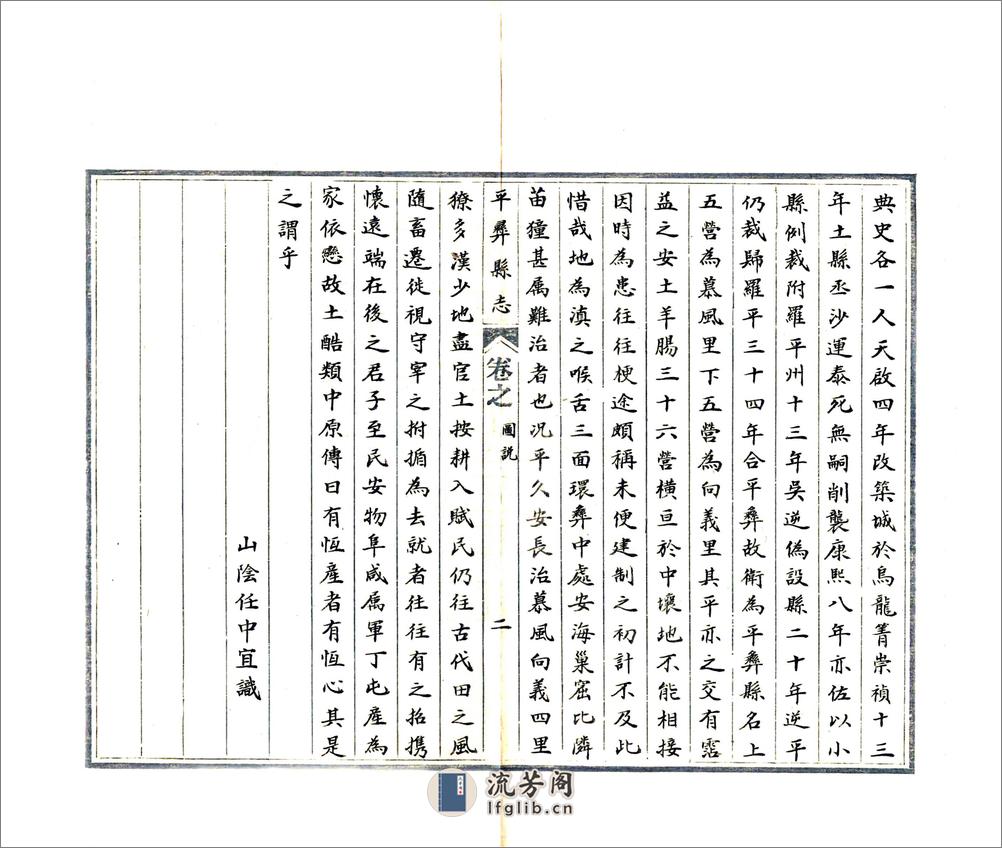 典史各一人天啟四年改築城於烏龍箐崇禎十三
年土縣丞沙運泰死無嗣削襲康熙八年亦佐以小
縣例裁附羅平州十三年吳逆偽設縣二十年逆平
仍裁歸羅平三十四年合平彝故衛為平彝縣名上
五營為慕風里下五營為向義里其平亦之交有霑
益之安土羊腸三十六營橫亘於中壤地不能相接
因時為患往往梗途頗稱未便建制之初計不及此
惜哉地為滇之喉舌三面環彝中處安海巢窟比隣
苗獞甚属難治者也况平久安長治慕風向義四里
平彝縣志
卷之
圖説
二
獠多漢少地盡官土按耕入賦民仍往古代田之風
隨畜遷徙視守宰之拊揗為去就者往往有之招携
懷遠端在後之君子至民安物阜咸属軍丁屯產為
家依戀故土酷類中原傳曰有恆產者有恆心其是
之謂乎
山陰任中宜識
流芳阁
lfglib.cn